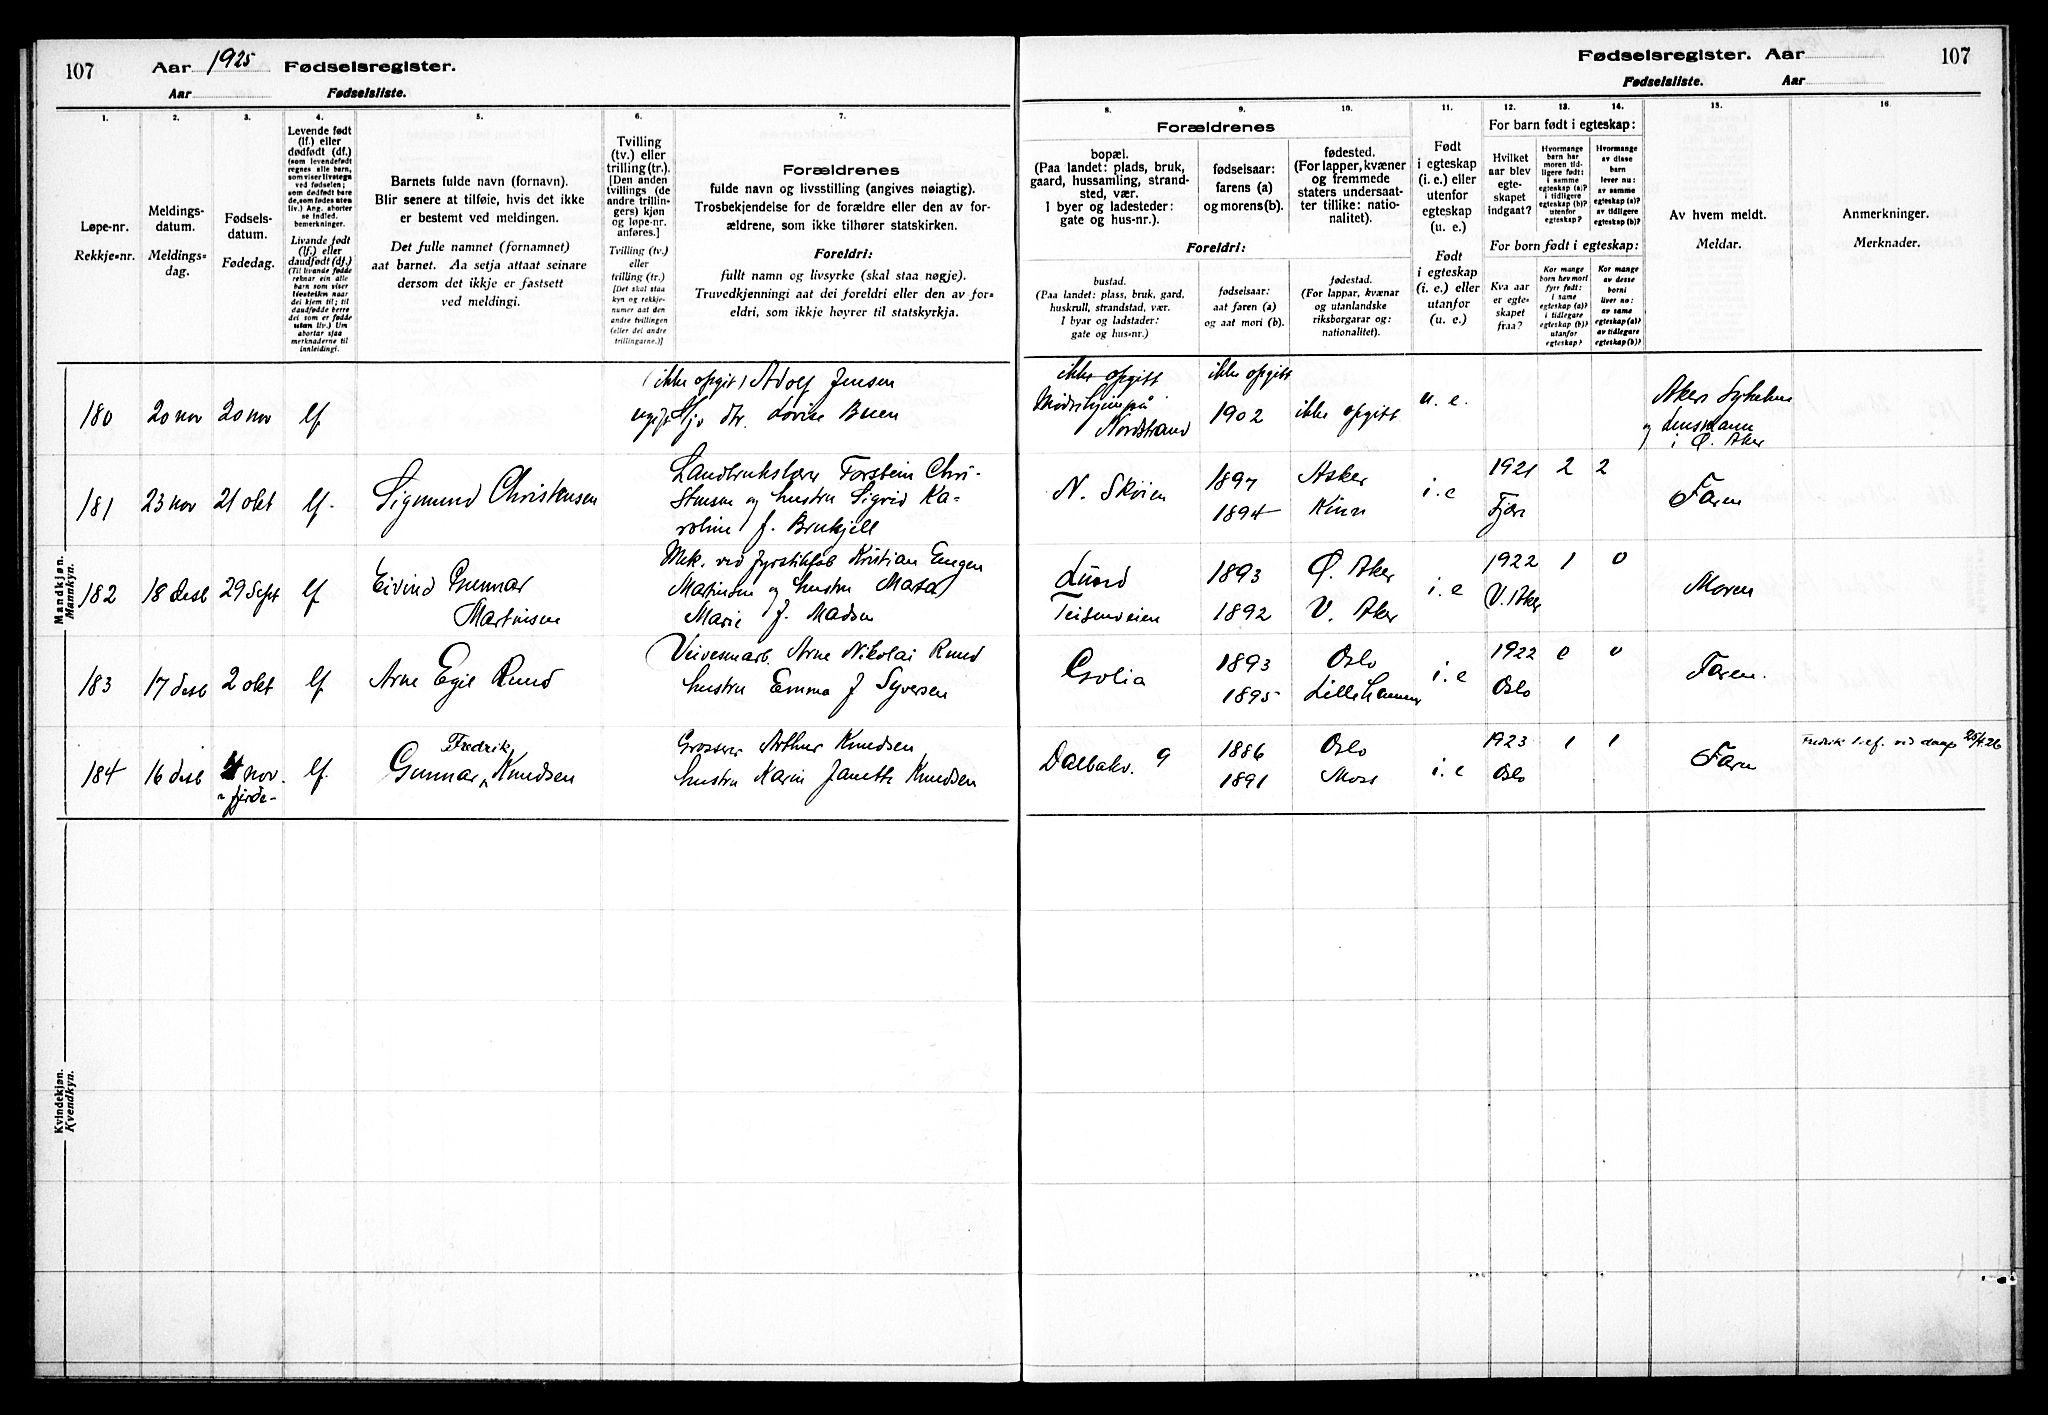 107 Aar 1925 Fødselsregister.
Aar Fødselsliste.
1. 2. 3. 4. 5. 6. 7.
Løpe-nr.
Rekkje-nr.
Meldings-
datum.
Meldings-
dag.
Fødsels-
datum.
Fødedag.
Levende født
(lf.) eller
dødfødt (df.)
(som levendefødt
regnes alle barn,
som viser livstegn
ved fødselen;
som dødfødt bare
de, som fødes uten
liv.) Ang. aborter
se indled.
bemerkninger.
Livande født
(lf.) eller
daudfødt (df.)
(Til livande fødde
reknar ein alle
barn som viser
livsteikn naar
dei kjem til; til
daudfødde berre
dei som er fødde
utan liv.) Um
abortar sjaa
merknaderne til
innleidingi.
Barnets fulde navn (fornavn).
Blir senere at tilføie, hvis det ikke
er bestemt ved meldingen.
Det fulle namnet (fornamnet)
aat barnet. Aa setja attaat seinare
dersom det ikkje er fastsett
ved meldingi.
Tvilling
(tv.) eller
trilling (tr.).
[Den anden
tvillings (de
andre trillin-
gers) kjøn
og løpe-nr.
anføres.]
Tvilling (tv.)
eller
trilling (tr.)
[Det skal staa
kyn og rekkje-
numer aat den
andre tvillingen
(eller dei andre
trillingarne.)]
Forældrenes
fulde navn og livsstilling (angives nøiagtig).
Trosbekjendelse for de forældre eller den av for-
ældrene, som ikke tilhører statskirken.
Foreldri:
fullt namn og livsyrke (skal staa nøgje).
Truvedkjenningi aat dei foreldri eller den av for-
eldri, som ikkje høyrer til statskyrkja.
Mandkjøn.
Mannkyn.
180 20 nov 20 nov lf.
(ikke opgit) Adolf Jensen
ugift Hj. dtr. Lovise Buen
181 23 nov 21 okt lf. Sigmund Christensen
Landbrukslærer Torstein Chri-
stensen og hustru Sigrid Ka-
roline f.
182 18 desb 29 Sept lf Eivind Gunnar
Martinsen
Mek. ved fyrstikfab Kristian Eugen
Martinsen og hustru Marta
Marie f. Madsen
183 17 desb 2 okt lf Arne Egil Ruud
Veivesenarb. Arne Nikolai Ruud
hustru Emma f Syversen
184 16 desb 4 nov. lf. Gunnar Fredrik Knudsen
- fjerde-
Grosserer Arthur Knudsen
hustru Karin Janette Knudsen
Kvindekjøn.
Kvendkyn.
Fødselsregister. Aar 107
Fødselsliste. Aar
8. 9. 10. 11. 12. 13. 14. 15. 16.
Forældrenes
bopæl.
(Paa landet: plads, bruk,
gaard, hussamling, strand-
sted, vær.
I byer og ladesteder:
gate og hus-nr.).
fødselsaar:
farens (a)
og morens (b).
fødested.
(For lapper, kvæner
og fremmede
staters undersaat-
ter tillike: natio-
nalitet).
Foreldri:
bustad.
(Paa landet: plass, bruk, gard,
huskrull, strandstad, vær.
I byar og ladstader:
gate og hus-nr.)
fødselsaar:
aat faren (a)
og aat mori (b).
fødestad.
(For lappar, kvænar
og utanlandske
riksborgarar og:
nationalitet).
Født
i egteskap
(i. e.) eller
utenfor
egteskap
(u. e.)
Født
i egteskap
(i. e.) eller
utanfor
(u. e.)
For barn født i egteskap:
Hvilket
aar blev
egte-
skapet
indgaat?
Hvormange
barn har
moren tid-
ligere født:
i samme
egteskap (a)?
i tidligere
egteskap (b)?
utenfor
egteskap?
Hvormange
av disse
barn
lever nu:
av samme
egteskap (a)?
av tidligere
egteskap (b)?
For born født i egteskap:
Kva aar
er egte-
skapet
fraa?
Kor mange
born hev mori
fyrr født:
i same
egteskap (a)?
i tidlegare
egteskap (b)?
utanfor
egteskap?
Kor mange
av desse
borni
liver no:
av same
egteskap (a)?
av tidlegare
egteskap (b)?
Av hvem meldt.
Meldar.
Anmerkninger.
Merknader.
ikke opgitt ikke opgitt
Mødrehjem på
Nordstrand 1902 ikke opgitt u. e.
Akers Sykehus
og Lensmann
i Ø. Aker
N. Skøien 1897 Asker i. e 1921 2 2 Faren
1894 Kinn
182 Lund 1893 Ø. Aker i. e 1922 1 0 Moren
Teisenveien 1892 V. Aker V. Aker
1893 Oslo i. e 1922 0 0 Faren.
1895 Lillehammer Oslo
Dalbakv. 9 1886 Oslo i. e 1923 1 1 Faren
1891 Moss Oslo
Fredrik ved daap 25/4.26